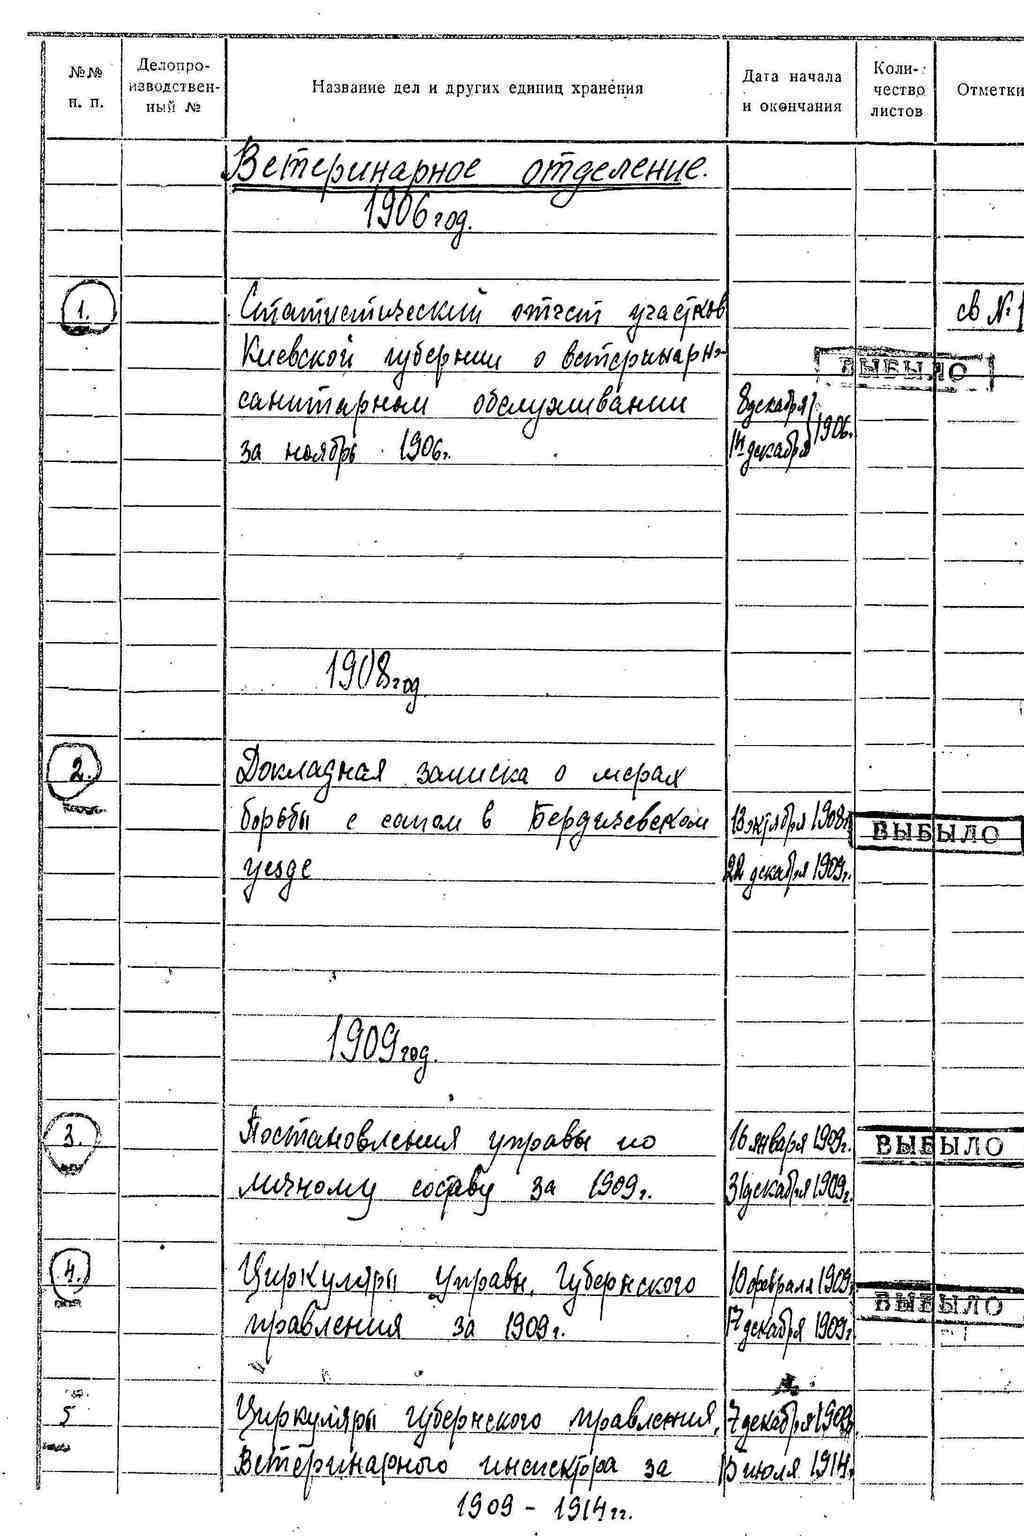 №№ п. п.
Делопроизводствен-ный №
Название дел и других единиц хранения
Дата начала и окончания
Коли-чество листов
Отметки
Ветеринарное отделение.
1906 год.
1. Статистический отчет участков св №1
Киевской губернии о ветеринарно- ВЫБЫЛО
санитарном обслуживании 8 декабря
за ноябрь 1906г. 14 декабря 1906г.
1908 год
2. Докладная записка о мерах
борьбы с сапом в Бердичевском 13 октября 1908г. ВЫБЫЛО
уезде 22 декабря 1909г.
1909 год.
3. Постановления управы по 16 января 1909г. ВЫБЫЛО
личному составу за 1909г. 31 декабря 1909г.
4. Циркуляры управы, Губернского 10 февраля 1909г. ВЫБЫЛО
правления за 1909г. 17 декабря 1909г.
5 Циркуляры губернского правления, 7 декабря 1909г.
Ветеринарного инспектора за 15 июля 1914г.
1909 - 1914 гг.